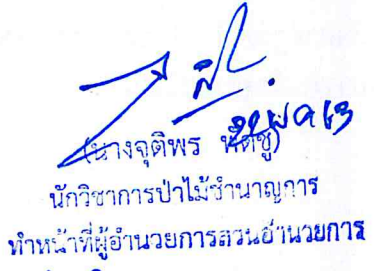 22 พ.ค. 63
(นางจุติพร พัดชู)
นักวิชาการป่าไม้ชำนาญการ
ทำหน้าที่ผู้อำนวยการส่วนอำนวยการ